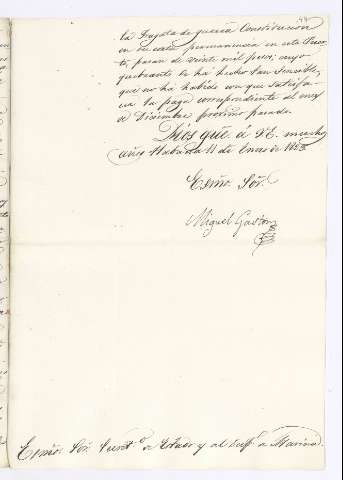 la Fragata de guerra Constitucion
en su corta permanencia en este Puer-
to, pasan de veinte mil pesos, cuyo
quebranto se ha hecho tan sensible,
que no ha habido con que satisfa-
cer la paga correspondiente al mes
de Diciembre proximo pasado.
Dios gue. á V.E. muchos
años Habana 11 de Enero de 1823.
Exmo. Sor.
Miguel Gaston
Exmo. Sor. Secret.o de Estado y del Desp.o de Marina.